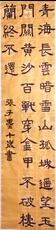 青海長雲暗雪山孤城遙望玉
門關黃沙百戰穿金甲不破樓
蘭終不還 張子墨十歲書